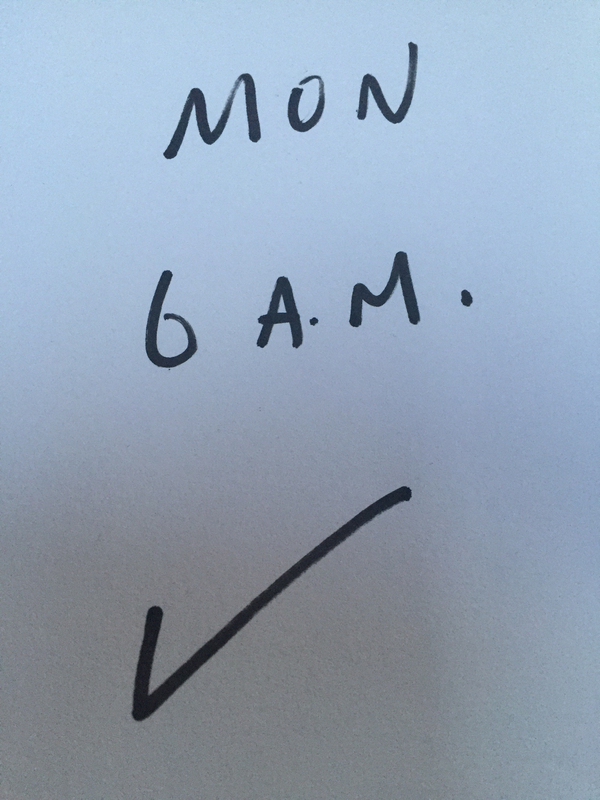 MON
6 A.M.
✓